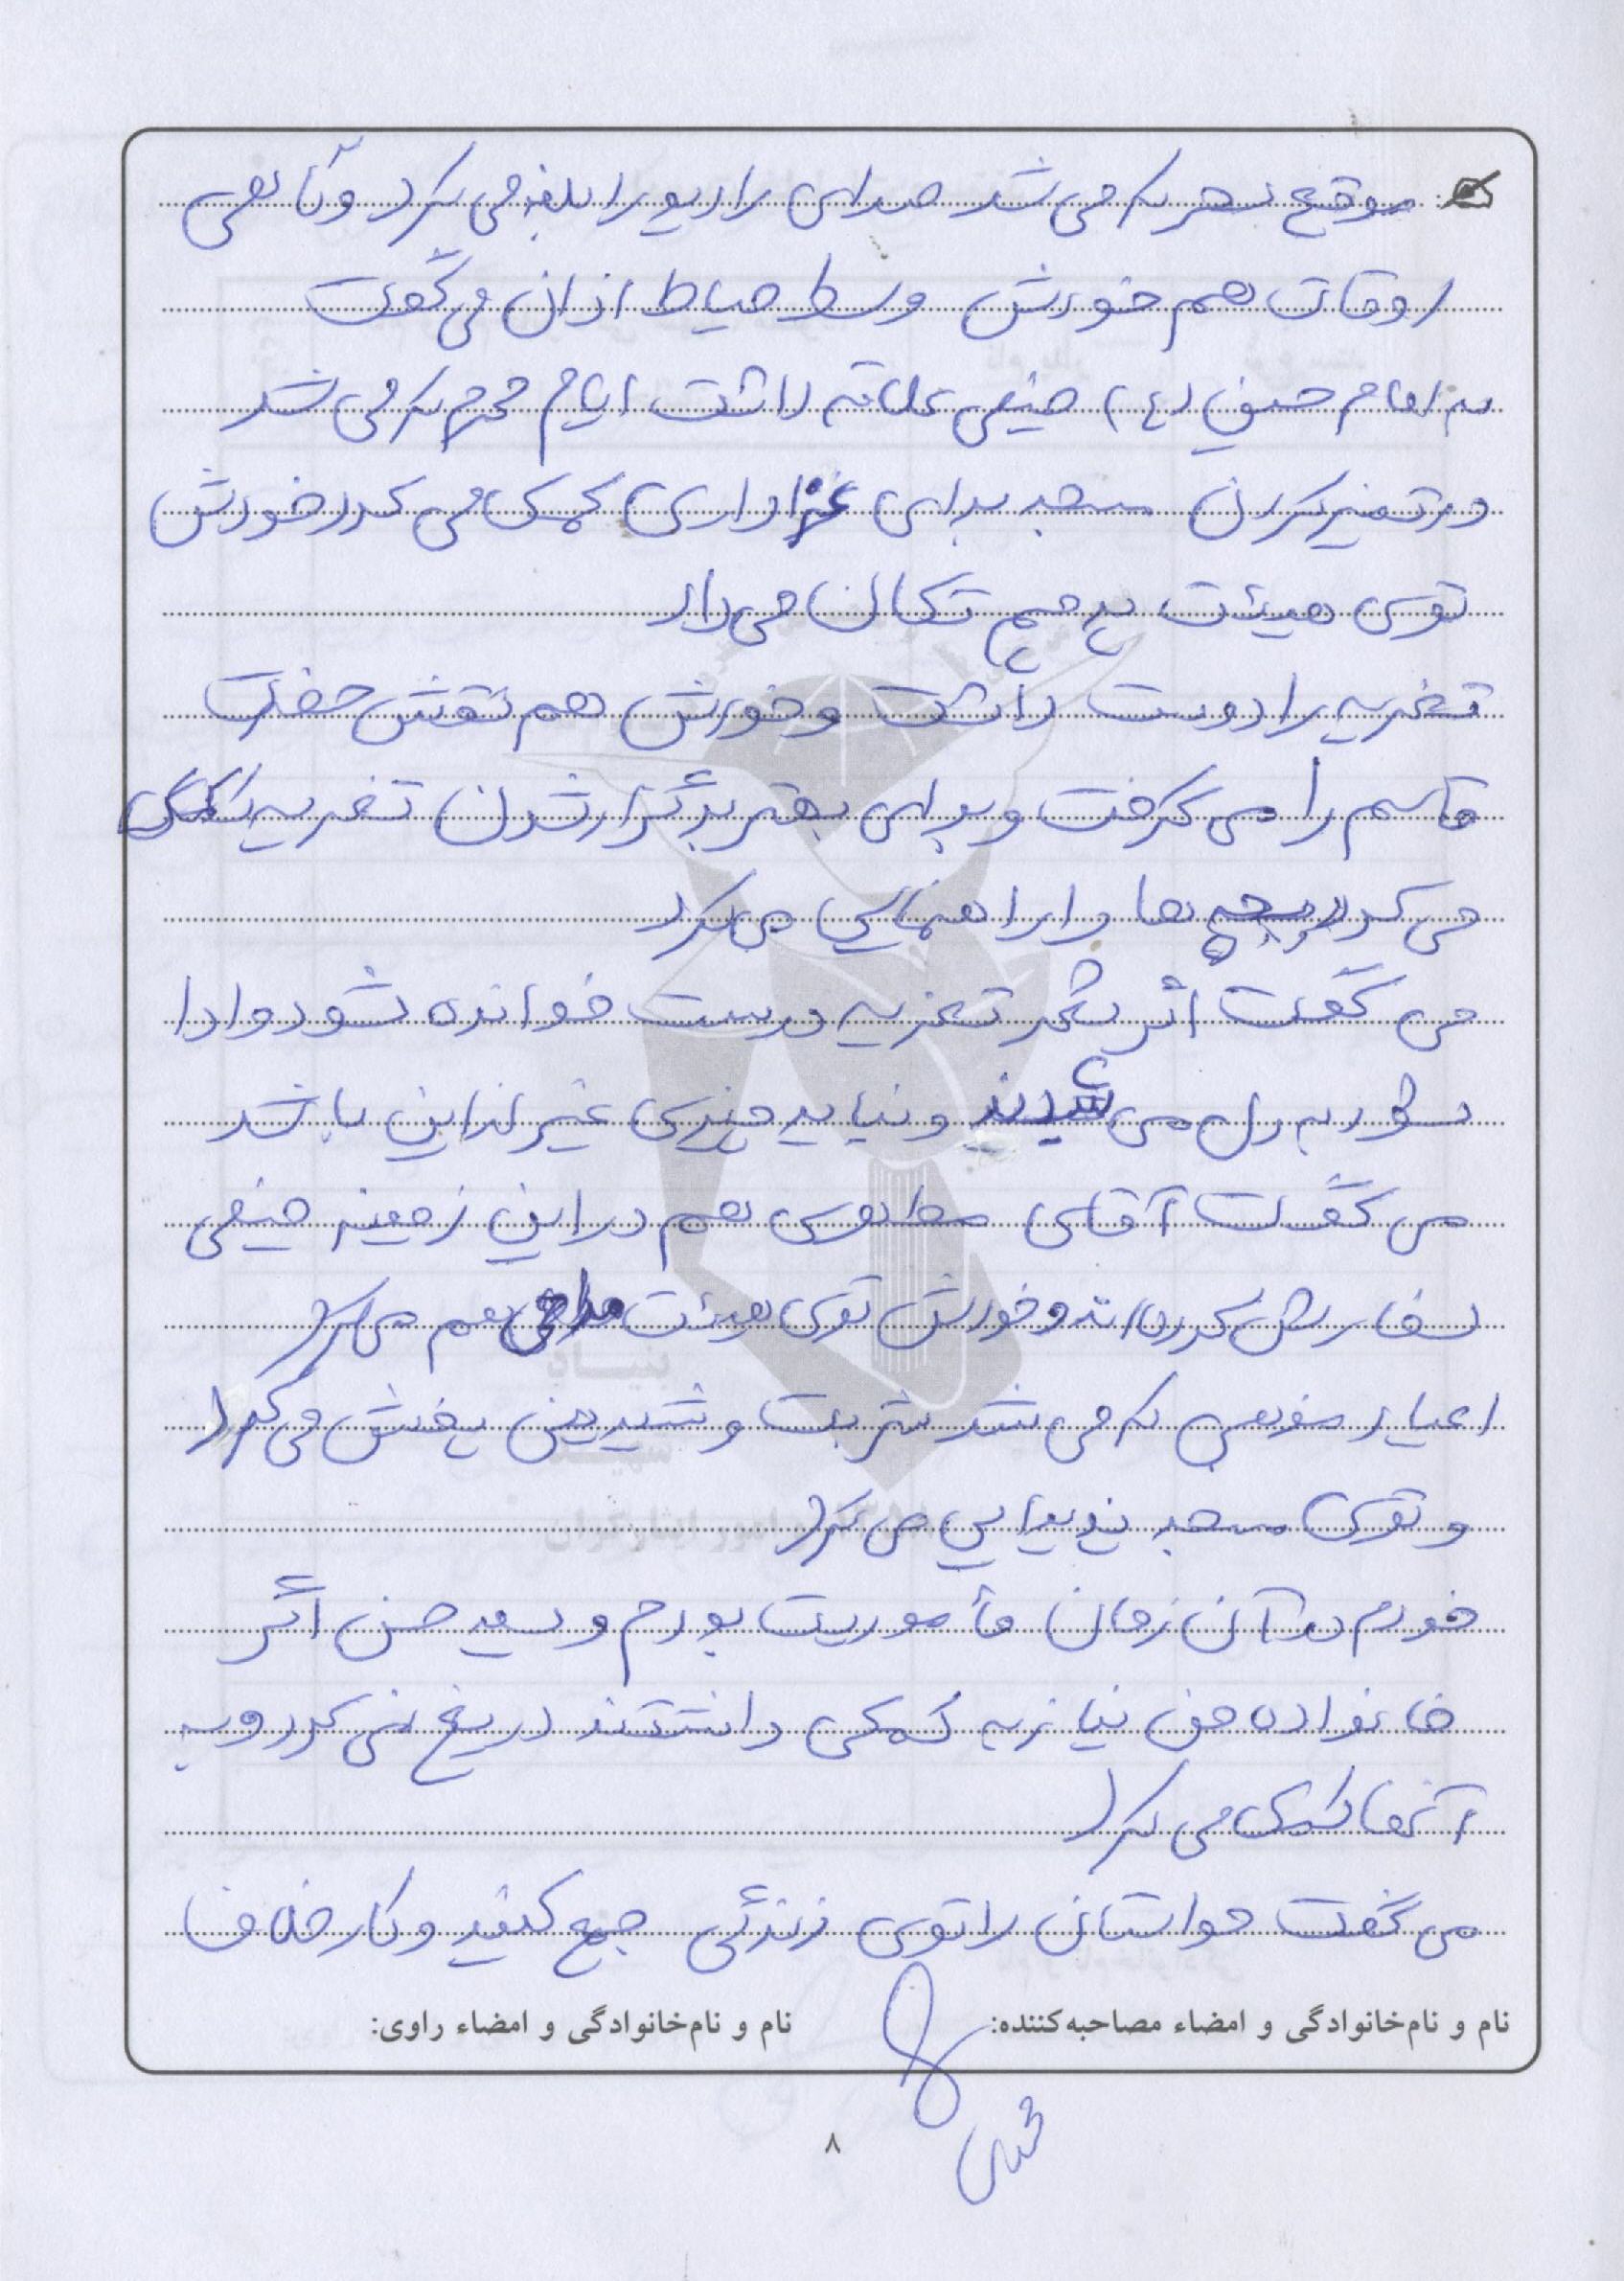 موقع سحر که می شد صدای رادیو را بلند می کرد و گاهی
اوقات هم خودش وسط حیاط اذان می گفت
به امام حسین (ع) خیلی علاقه داشت ایام محرم که می شد
در تمیز کردن مسجد برای عزاداری کمک می کرد خودش
توی هیئت پرچم تکان می داد
تعزیه را دوست داشت و خودش هم نقش حضرت
قاسم را می گرفت و برای بهتر برگزار شدن تعزیه کمک
می کرد بچه ها را راهنمایی می کرد
می گفت اگر شعر تعزیه درست خوانده شود و ادا
شود به دل می شیند و نباید چیزی غیر از این باشد
می گفت آقای مطهری هم در این زمینه خیلی
سفارش کرده اند و خودش توی هیئت مداحی هم می کرد
اعیاد مذهبی که می شد شربت و شیرینی پخش می کرد
و توی مسجد پذیرایی می کرد
خودم در آن زمان مأموریت بودم و سید حسن اگر
خانواده من نیاز به کمکی داشتند دریغ نمی کرد و به
آنها کمک می کرد
می گفت حواستان را توی زندگی جمع کنید و کار خلاف
نام و نام‌خانوادگی و امضاء مصاحبه‌کننده:
نام و نام‌خانوادگی و امضاء راوی:
۸